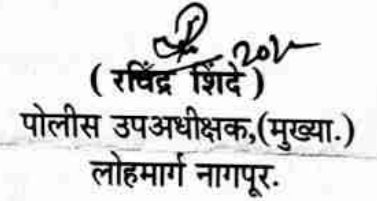 ( रविंद्र शिंदे )
पोलीस उपअधीक्षक,(मुख्या.)
लोहमार्ग नागपूर.